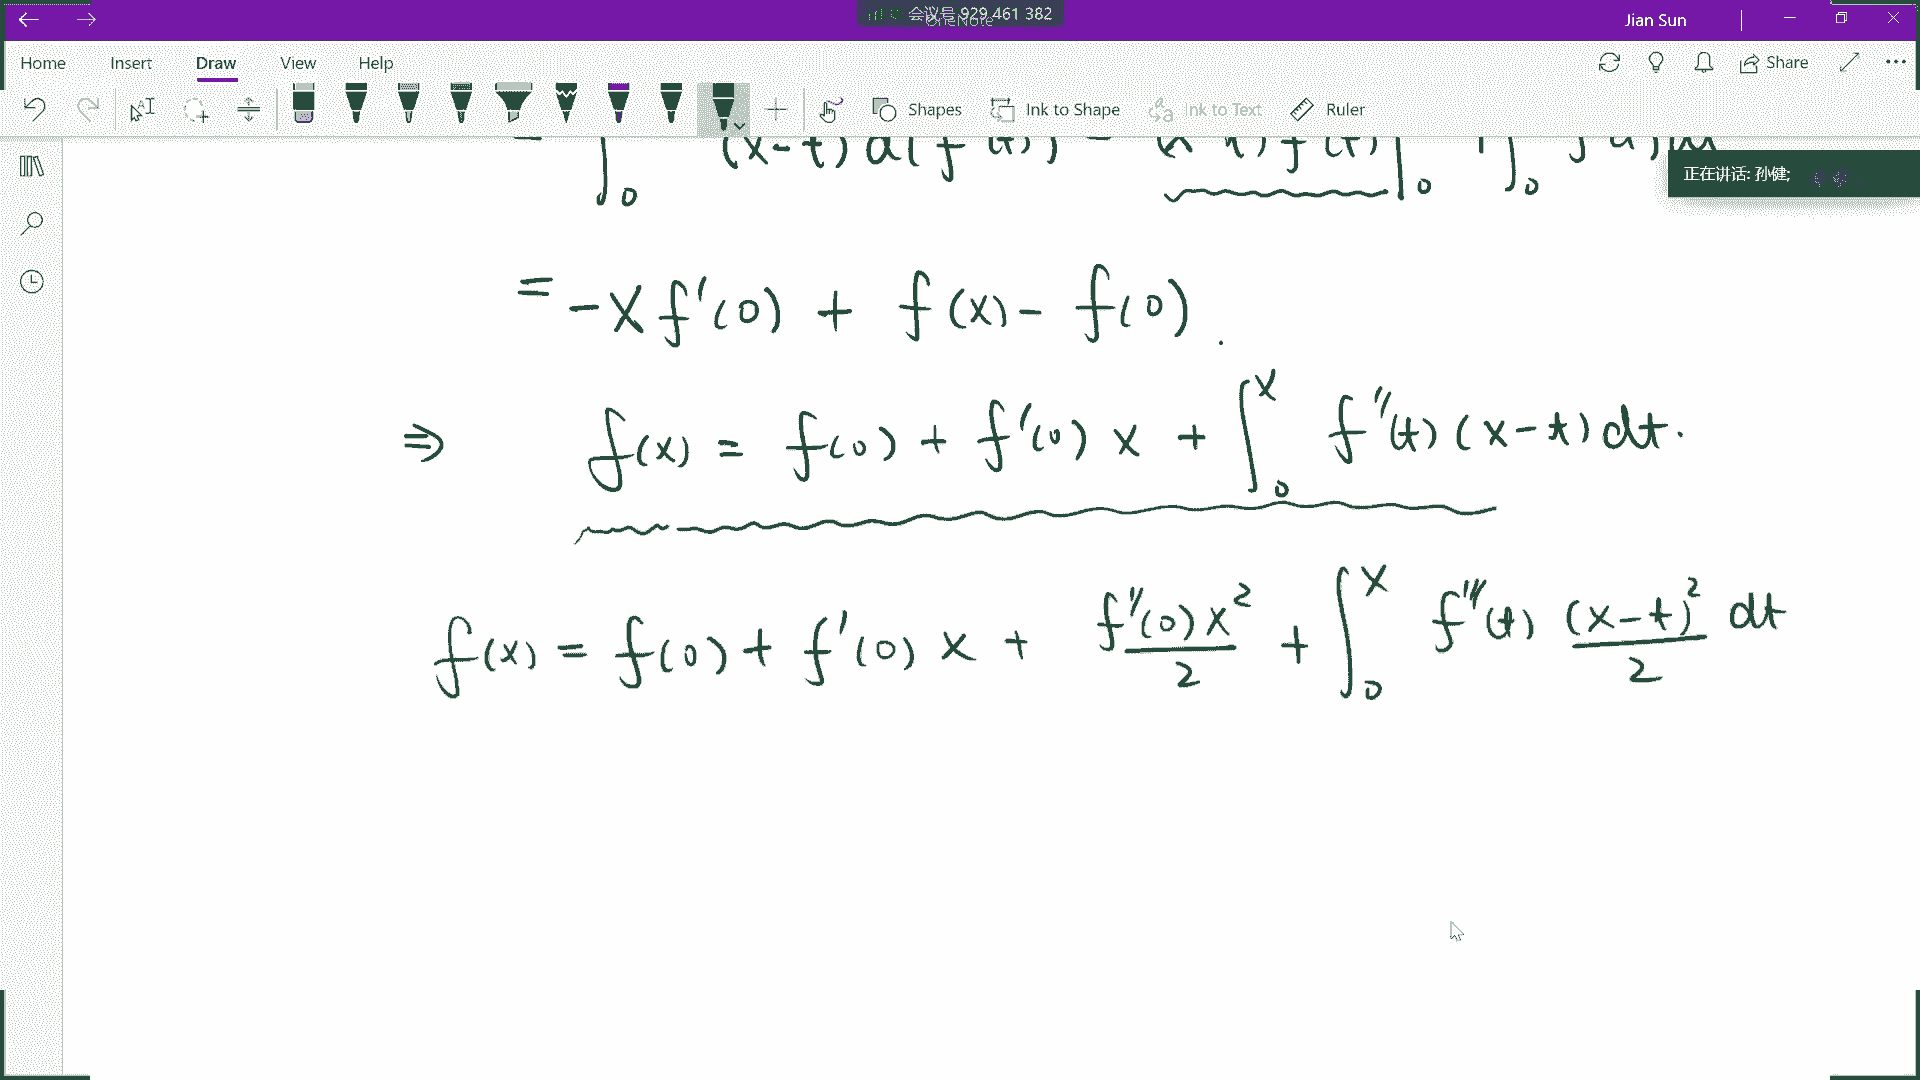 会议号 929 461 382
OneNote
Jian Sun
Home Insert Draw View Help
Share
Shapes Ink to Shape Ink to Text Ruler
正在讲话: 孙健;
= ∫₀ (x-t) d(f'(t)) =
= -x f'(0) + f(x) - f(0).
⇒ f(x) = f(0) + f'(0) x + ∫₀ˣ f''(t) (x-t) dt.
f(x) = f(0) + f'(0) x + f''(0) x²/2 + ∫₀ˣ f'''(t) (x-t)²/2 dt